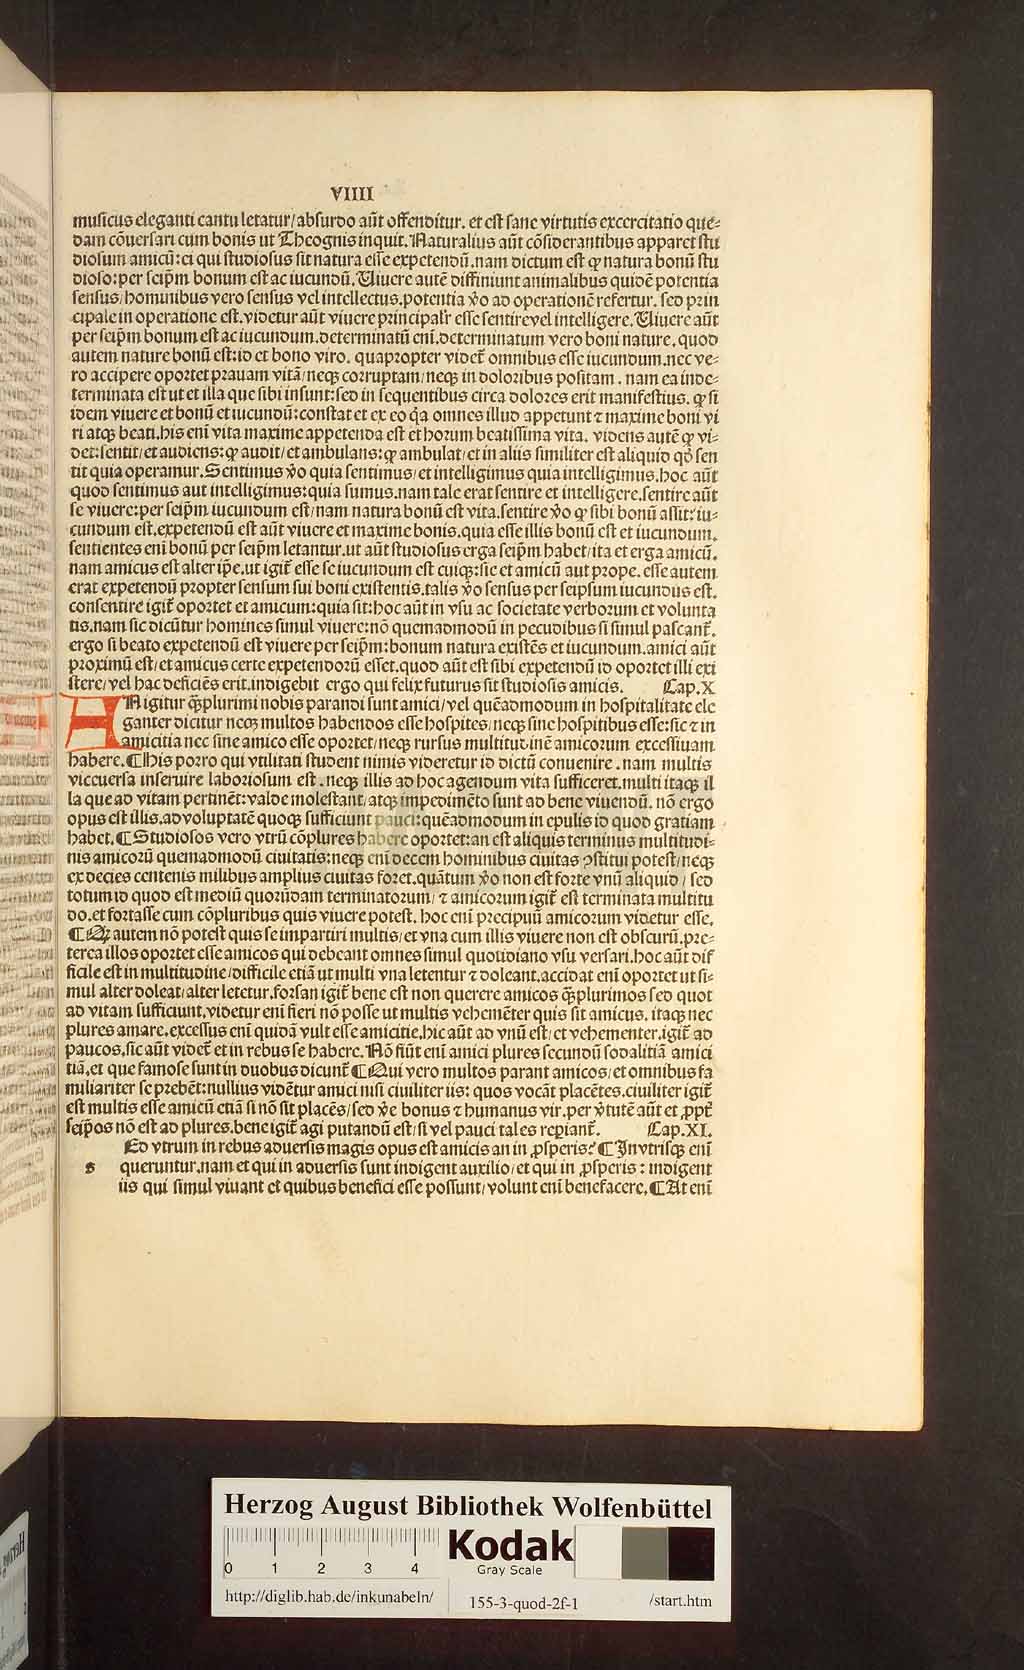 VIIII
muſicus eleganti cantu letatur/abſurdo aūt offenditur. et eſt ſane virtutis excercitatio que-
dam cōuerſari cum bonis ut Theognis inquit. Naturalius aūt cōſiderantibus apparet ſtu
dioſum amicū: ei qui ſtudioſus ſit natura eſſe expetendū. nam dictum eſt ꝙ natura bonū ſtu
dioſo: per ſeip̄m bonum eſt ac iucundū. Uiuere autē diffiniunt animalibus quidē potentia
ſenſus/hominibus vero ſenſus vel intellectus. potentia v̄o ad operationē refertur. ſed prin
cipale in operatione eſt. videtur aūt viuere principalr̄ eſſe ſentire vel intelligere. Uiuere aūt
per ſeip̄m bonum eſt ac iucundum. determinatū enī. determinatum vero boni nature. quod
autem nature bonū eſt: id et bono viro. quapropter videt̄ omnibus eſſe iucundum. nec ve-
ro accipere oportet prauam vitā/neqꝫ corruptam/neqꝫ in doloribus poſitam. nam ea inde-
terminata eſt ut et illa que ſibi inſunt: ſed in ſequentibus circa dolores erit manifeſtius. ꝙ ſi
idem viuere et bonū et iucundū: conſtat et ex eo q̄a omnes illud appetunt ⁊ maxime boni vi
ri atqꝫ beati. his enī vita maxime appetenda eſt et horum beatiſſima vita. videns autē ꝙ vi-
det: ſentit/et audiens: ꝙ audit/et ambulans: ꝙ ambulat/et in aliis ſimiliter eſt aliquid qd̄ ſen
tit quia operamur. Sentimus v̄o quia ſentimus/et intelligimus quia intelligimus. hoc aūt
quod ſentimus aut intelligimus: quia ſumus. nam tale erat ſentire et intelligere. ſentire aūt
ſe viuere: per ſeip̄m iucundum eſt/nam natura bonū eſt vita. ſentire v̄o ꝙ ſibi bonū aſſit: iu-
cundum eſt. expetendū eſt aūt viuere et maxime bonis. quia eſſe illis bonū eſt et iucundum.
ſentientes enī bonū per ſeip̄m letantur. ut aūt ſtudioſus erga ſeip̄m habet/ita et erga amicū.
nam amicus eſt alter ip̄e. ut igit̄ eſſe ſe iucundum eſt cuiqꝫ: ſic et amicū aut prope. eſſe autem
erat expetendū propter ſenſum ſui boni exiſtentis. talis v̄o ſenſus per ſeipſum iucundus eſt.
conſentire igit̄ oportet et amicum: quia ſit: hoc aūt in vſu ac ſocietate verborum et volunta
tis. nam ſic dicūtur homines ſimul viuere: nō quemadmodū in pecudibus ſi ſimul paſcant̄.
ergo ſi beato expetendū eſt viuere per ſeip̄m: bonum natura exiſtēs et iucundum. amici aūt
proximū eſt/et amicus certe expetendorū eſſet. quod aūt eſt ſibi expetendū id oportet illi exi
ſtere/vel hac deficiēs erit. indigebit ergo qui felix futurus ſit ſtudioſis amicis. Cap.X
AN igitur q̄ꝫplurimi nobis parandi ſunt amici/vel quēadmodum in hoſpitalitate ele
ganter dicitur neqꝫ multos habendos eſſe hoſpites/neqꝫ ſine hoſpitibus eſſe: ſic ⁊ in
amicitia nec ſine amico eſſe oportet/neqꝫ rurſus multitudinē amicorum exceſſiuam
habere. ¶His porro qui vtilitati ſtudent nimis videretur id dictū conuenire. nam multis
viccuerſa inſeruire laborioſum eſt. neqꝫ illis ad hoc agendum vita ſufficeret. multi itaqꝫ il
la que ad vitam pertinēt: valde moleſtant/atqꝫ impedimēto ſunt ad bene viuendū. nō ergo
opus eſt illis. ad voluptatē quoqꝫ ſufficiunt pauci: quēadmodum in epulis id quod gratiam
habet. ¶Studioſos vero vtrū cōplures habere oportet: an eſt aliquis terminus multitudi-
nis amicorū quemadmodū ciuitatis: neqꝫ enī decem hominibus ciuitas ꝯſtitui poteſt/neqꝫ
ex decies centenis milibus amplius ciuitas foret. quāntum v̄o non eſt forte vnū aliquid/ſed
totum id quod eſt mediū quorūdam terminatorum/⁊ amicorum igit̄ eſt terminata multitu
do. et fortaſſe cum cōpluribus quis viuere poteſt. hoc enī precipuū amicorum videtur eſſe.
¶Qꝫ autem nō poteſt quis ſe impartiri multis/et vna cum illis viuere non eſt obſcurū. pre-
terea illos oportet eſſe amicos qui debeant omnes ſimul quotidiano vſu verſari. hoc aūt dif
ficile eſt in multitudine/difficile etiā ut multi vna letentur ⁊ doleant. accidat enī oportet ut ſi-
mul alter doleat/alter letetur. forſan igit̄ bene eſt non querere amicos q̄ꝫplurimos ſed quot
ad vitam ſufficiunt. videtur enī fieri nō poſſe ut multis vehemēter quis ſit amicus. itaqꝫ nec
plures amare. exceſſus enī quidā vult eſſe amicitie. hic aūt ad vnū eſt/et vehementer. igit̄ ad
paucos. ſic aūt videt̄ et in rebus ſe habere. Nō fiūt enī amici plures ſecundū ſodalitiā amici
tiā. et que famoſe ſunt in duobus dicunt̄ ¶Qui vero multos parant amicos/et omnibus fa
miliariter ſe prebēt: nullius vidētur amici niſi ciuiliter iis: quos vocāt placētes. ciuiliter igit̄
eſt multis eſſe amicū etiā ſi nō ſit placēs/ſed v̄e bonus ⁊ humanus vir. per v̄tutē aūt et ꝓpt̄
ſeip̄os nō eſt ad plures. bene igit̄ agi putandū eſt/ſi vel pauci tales reperiant̄. Cap.XI.
Ed vtrum in rebus aduerſis magis opus eſt amicis an in ꝓſperis? ¶In vtriſqꝫ enī
s queruntur. nam et qui in aduerſis ſunt indigent auxilio/et qui in ꝓſperis: indigent
iis qui ſimul viuant et quibus benefici eſſe poſſunt/volunt enī benefacere. ¶At enī
Herzog August Bibliothek Wolfenbüttel
0 1 2 3 4
Kodak
Gray Scale
http://diglib.hab.de/inkunabeln/
155-3-quod-2f-1
/start.htm